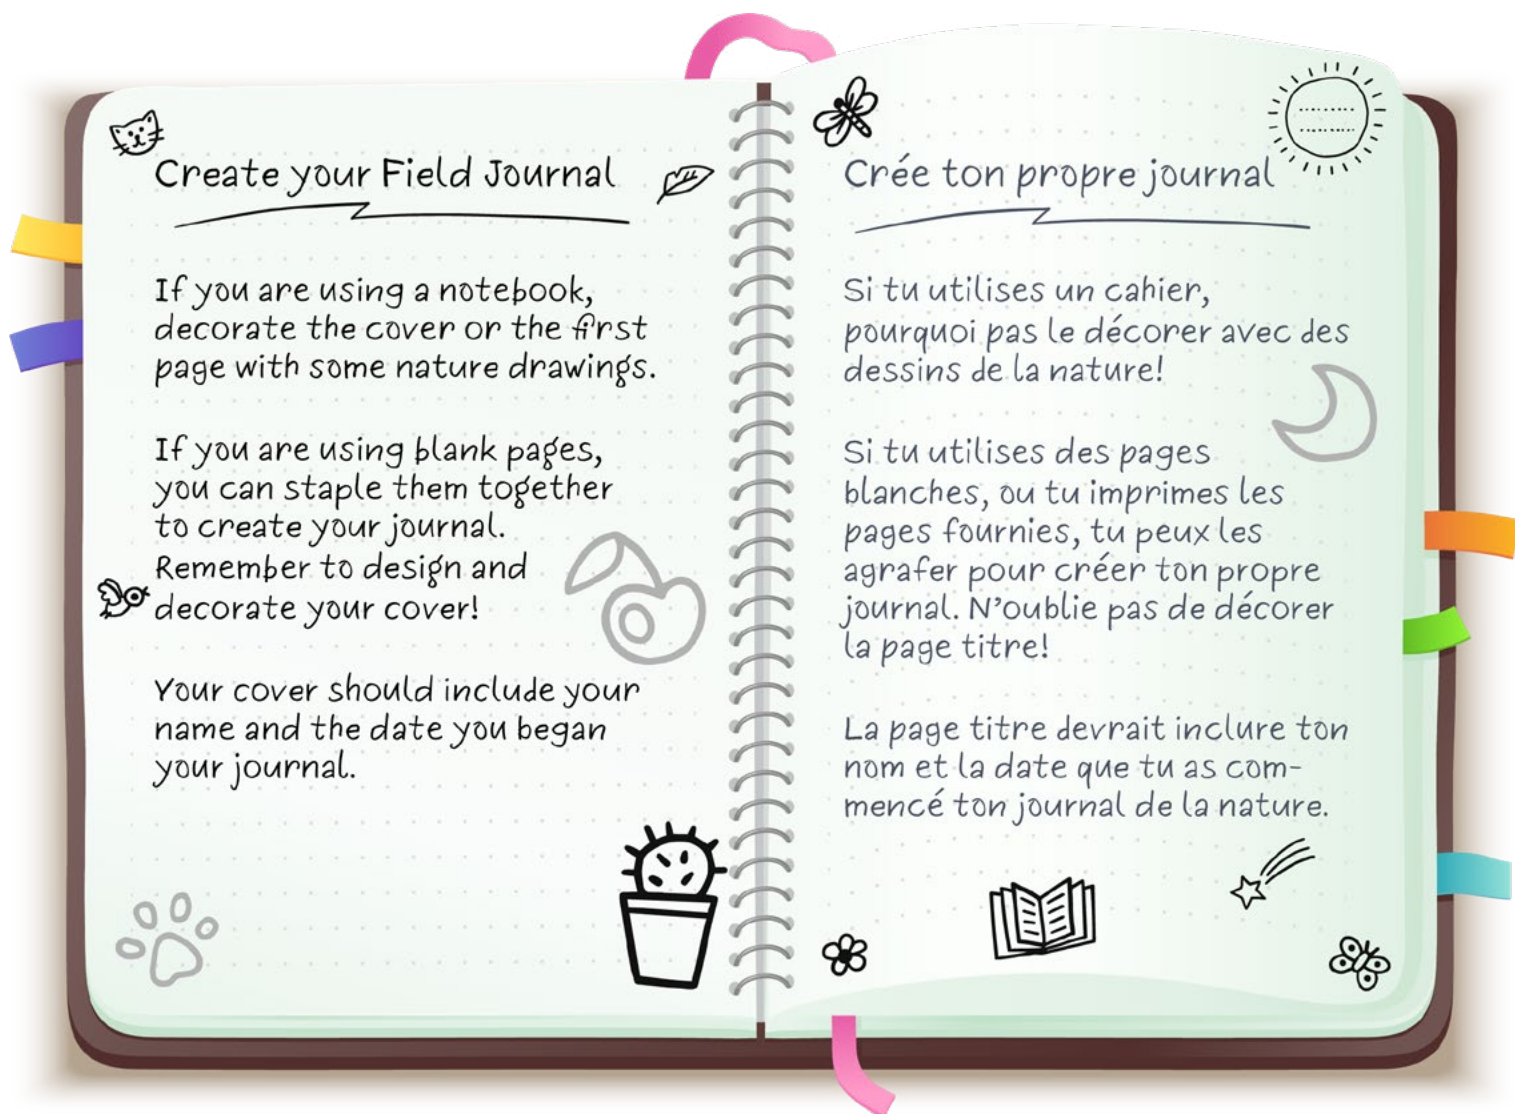 Create your Field Journal
If you are using a notebook,
decorate the cover or the first
page with some nature drawings.
If you are using blank pages,
you can staple them together
to create your journal.
Remember to design and
decorate your cover!
Your cover should include your
name and the date you began
your journal.
Crée ton propre journal
Si tu utilises un cahier,
pourquoi pas le décorer avec des
dessins de la nature!
Si tu utilises des pages
blanches, ou tu imprimes les
pages fournies, tu peux les
agrafer pour créer ton propre
journal. N'oublie pas de décorer
la page titre!
La page titre devrait inclure ton
nom et la date que tu as com-
mencé ton journal de la nature.